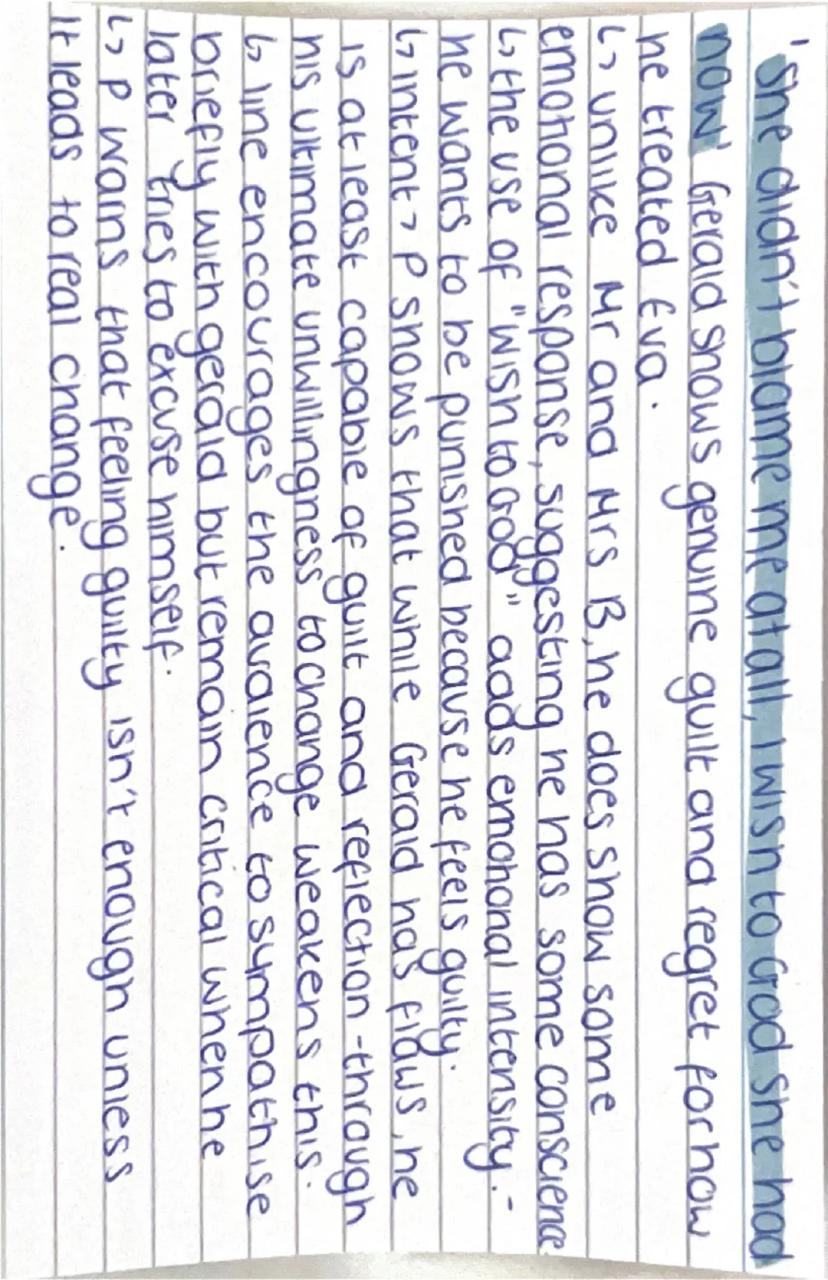 'she didn't blame me at all, I wish to God she had
now' Gerald shows genuine guilt and regret for how
he treated Eva.
↳ unlike Mr and Mrs B, he does show some
emotional response, suggesting he has some conscience
↳ the use of "wish to God" adds emotional intensity. -
he wants to be punished because he feels guilty.
↳ intent > P shows that while Gerald has flaws, he
is at least capable of guilt and reflection - through
his ultimate unwillingness to change weakens this.
↳ line encourages the audience to sympathise
briefly with gerald but remain critical when he
later tries to excuse himself.
↳ P warns that feeling guilty isn't enough unless
it leads to real change.